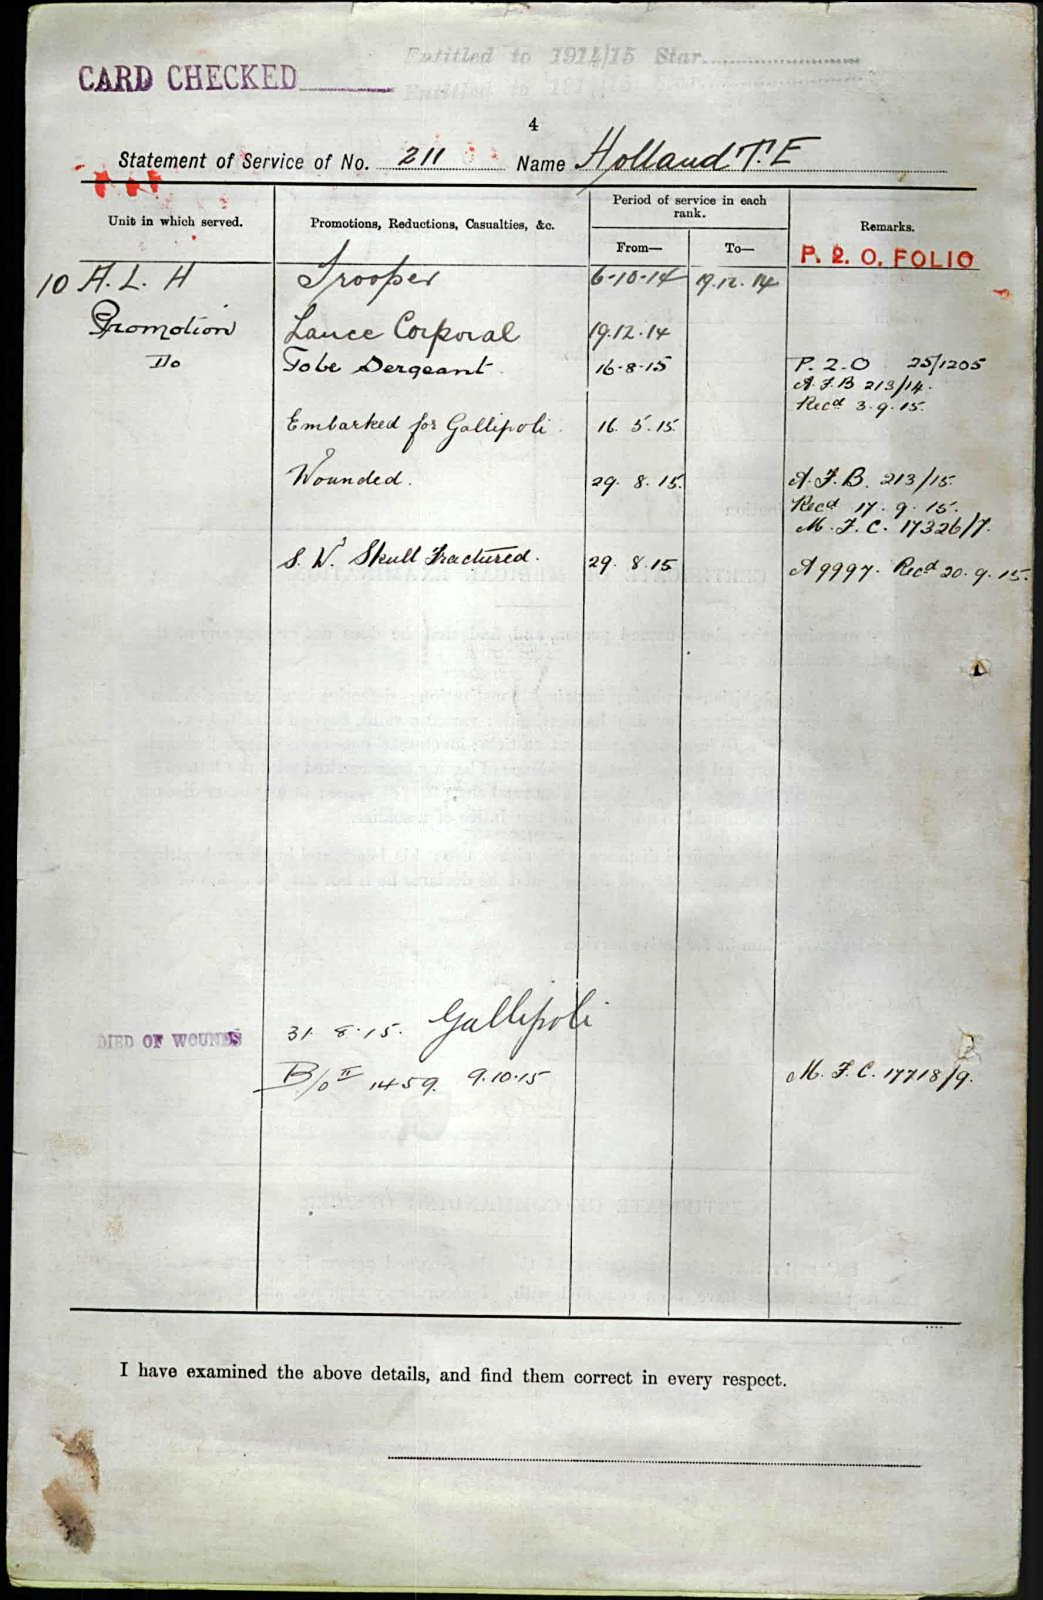 Entitled to 1914/15 Star
CARD CHECKED
Entitled to
4
Statement of Service of No. 211 Name Holland T. E
Unit in which served. Promotions, Reductions, Casualties, &c. Period of service in each rank. Remarks.
From— To—
P. 2. O. FOLIO
10 A. L. H Trooper 6-10-14 19.12.14
Promotion Lance Corporal 19.12.14
Do To be Sergeant 16-8-15 P. 2. O 25/1205
A. F. B 213/14.
Recd 3.9.15.
Embarked for Gallipoli 16.5.15.
Wounded. 29.8.15. A. F. B. 213/15
Recd 17.9.15.
M. F. C. 17326/7.
S. W. Skull Fractured. 29.8.15 A9997. Recd 20.9.15.
DIED OF WOUNDS 31 8.15. Gallipoli
B/o II 1459. 9.10.15 M. F. C. 17718/9.
I have examined the above details, and find them correct in every respect.